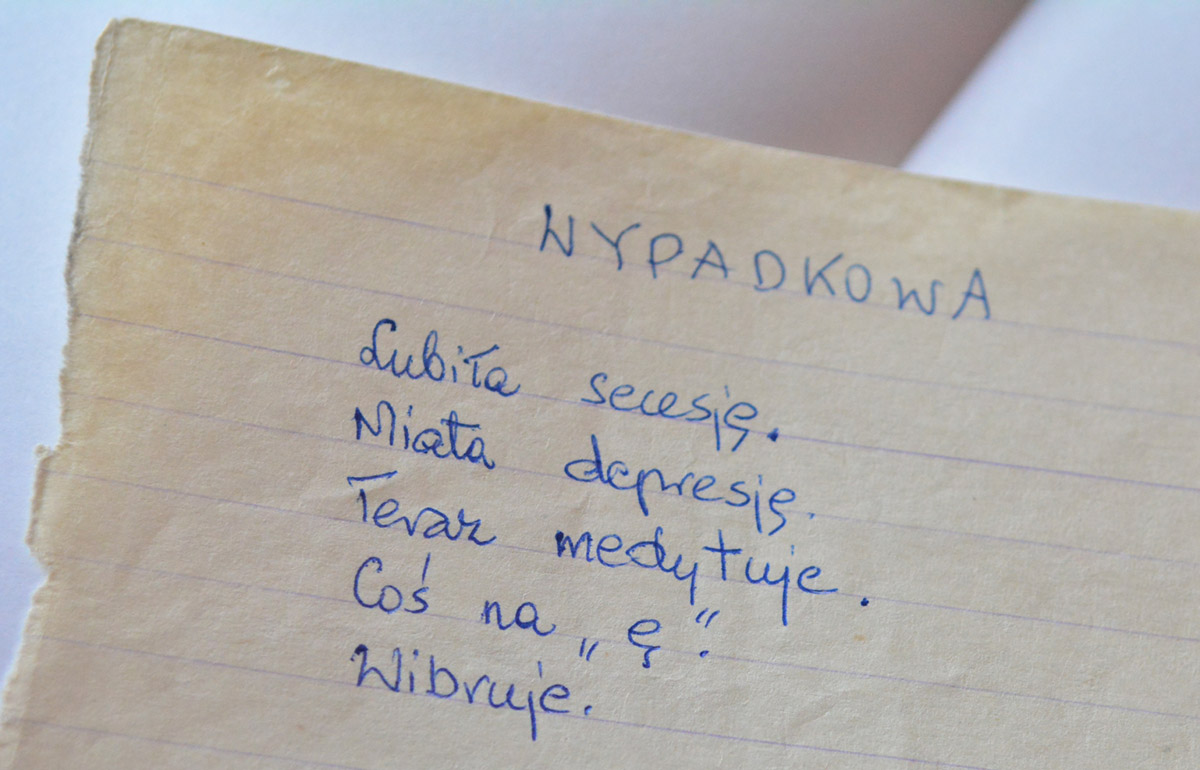 WYPADKOWA
Lubiła secesję.
Miała depresję.
Teraz medytuje.
Coś na „ę".
Wibruje.